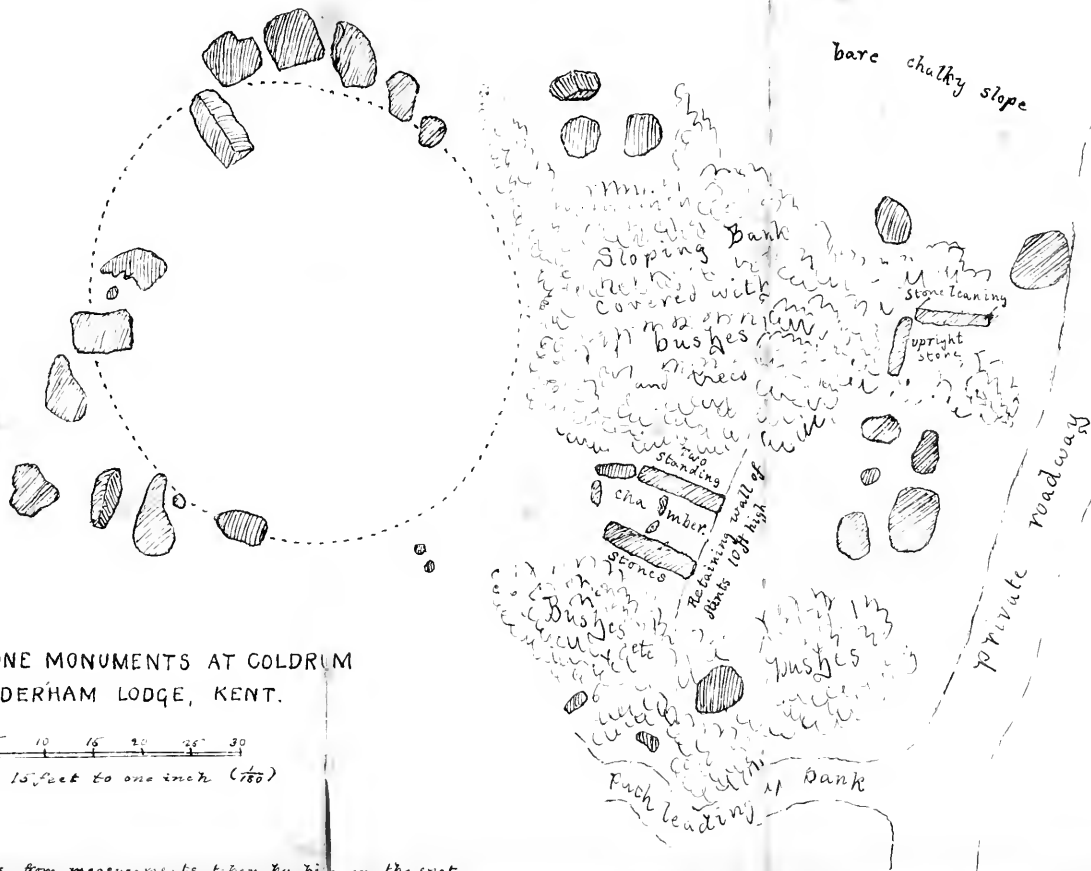 bare chalky slope
Sloping Bank
covered with
bushes
and trees
stone leaning
upright
stone
Two
standing
chamber.
stones
Retaining wall of
flints 10 ft high
Bushes
etc
bushes
private roadway
Path leading up bank
ONE MONUMENTS AT COLDRUM
DERHAM LODGE, KENT.
10 15 20 25 30
15 feet to one inch (1/180)
from measurements taken by him on the spot